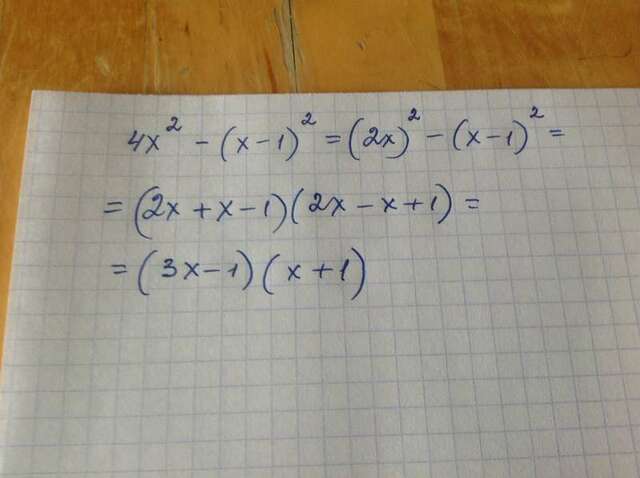 4x² - (x-1)² = (2x)² - (x-1)² =
= (2x + x-1)(2x - x+1) =
= (3x-1)(x+1)